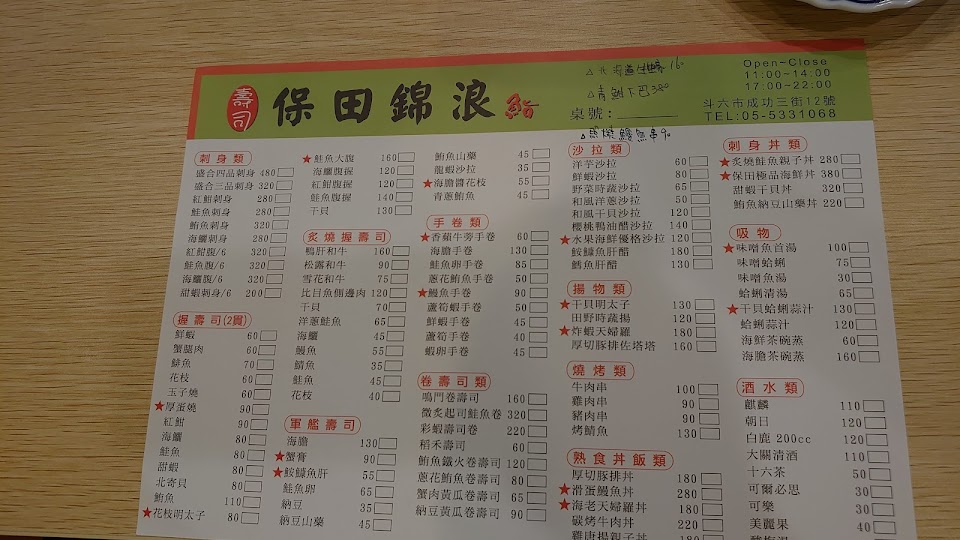 壽司
保田錦浪
Open~Close
11:00~14:00
17:00~22:00
斗六市成功三街12號
TEL:05-5331068
桌號:
160
△青魽下巴380
90
刺身類
盛合四品刺身 480
盛合三品刺身 320
紅魽刺身 280
鮭魚刺身 280
鮪魚刺身 320
海鱺刺身 280
紅魽腹/6 320
鮭魚腹/6 320
海鱺腹/6 320
甜蝦刺身/6 200
握壽司(2貫)
鮮蝦 60
蟹腿肉 60
緋魚 70
花枝 60
玉子燒 60
★厚蛋燒 90
紅魽 90
海鱺 80
鮭魚 80
甜蝦 80
北寄貝 80
鮪魚 110
★花枝明太子 80
★鮭魚大腹 160
海鱺腹握 120
紅魽腹握 120
鮭魚腹握 140
干貝 130
炙燒握壽司
鴨肝和牛 160
松露和牛 90
雪花和牛 75
比目魚側邊肉 120
干貝 70
洋蔥鮭魚 65
海鱺 45
鰻魚 55
鯖魚 35
鮭魚 45
花枝 40
軍艦壽司
海膽 130
★蟹膏 90
★鮟鱇魚肝 55
鮭魚卵 65
納豆 35
納豆山藥 45
鮪魚山藥 45
龍蝦沙拉 35
★海膽醬花枝 55
青蔥鮪魚 45
手卷類
★香蘋牛旁手卷 60
海膽手卷 130
鮭魚卵手卷 85
蔥花鮪魚手卷 50
★鰻魚手卷 90
蘆筍蝦手卷 50
鮮蝦手卷 45
蘆筍手卷 40
蝦卵手卷 45
卷壽司類
鳴門卷壽司 160
微炙起司鮭魚卷 320
彩蝦壽司卷 220
稻禾壽司 60
鮪魚鐵火卷壽司 120
蔥花鮪魚卷壽司 80
蟹肉黃瓜卷壽司 65
納豆黃瓜卷壽司 90
沙拉類
洋芋沙拉 60
鮮蝦沙拉 80
野菜時蔬沙拉 65
和風洋蔥沙拉 50
和風干貝沙拉 120
櫻桃鴨油醋沙拉 140
★水果海鮮優格沙拉 120
鮟鱇魚肝醋 180
鱈魚肝醋 130
揚物類
★干貝明太子 130
田野時蔬揚 120
★炸蝦天婦羅 180
厚切豚排佐塔塔 160
燒烤類
牛肉串 100
雞肉串 90
豬肉串 90
烤鯖魚 130
熟食丼飯類
厚切豚排丼 180
★滑蛋鰻魚丼 280
★海老天婦羅丼 180
碳烤牛肉丼 220
雞唐揚親子丼 180
刺身丼類
★炙燒鮭魚親子丼 280
★保田極品海鮮丼 380
甜蝦干貝丼 320
鮪魚納豆山藥丼 220
吸物
★味噌魚首湯 100
味噌蛤蜊 75
味噌魚湯 30
蛤蜊清湯 65
★干貝蛤蜊蒜汁 130
蛤蜊蒜汁 120
海鮮茶碗蒸 60
海膽茶碗蒸 160
酒水類
麒麟 110
朝日 120
白鹿 200cc 120
大關清酒 110
十六茶 50
可爾必思 30
可樂 30
美麗果 40